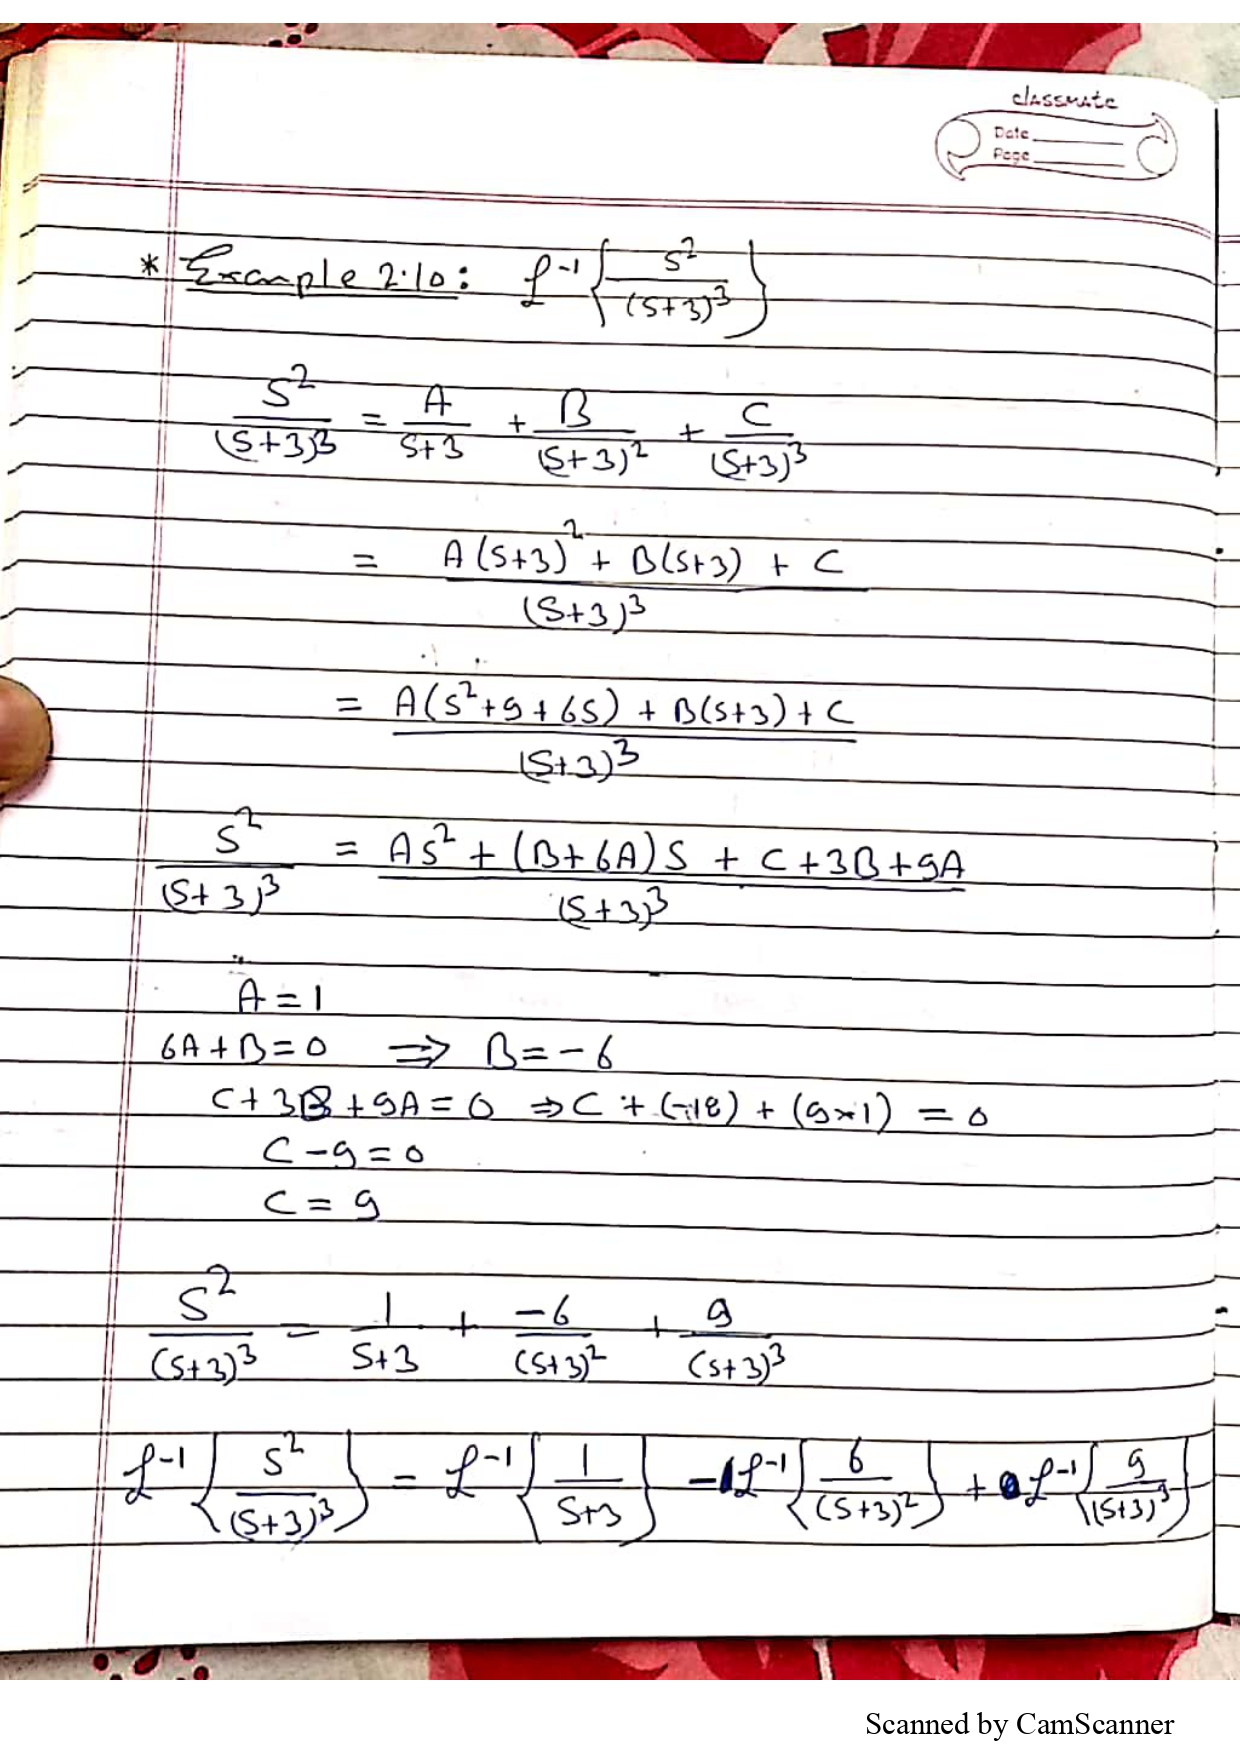 classmate
Date
Page
* Example 2.10: ℒ⁻¹{ s² / (s+3)³ }
s²/(s+3)³ = A/(s+3) + B/(s+3)² + C/(s+3)³
= A(s+3)² + B(s+3) + C / (s+3)³
= A(s²+9+6s) + B(s+3) + C / (s+3)³
s²/(s+3)³ = As² + (B+6A)s + C+3B+9A / (s+3)³
A = 1
6A + B = 0 ⇒ B = -6
C + 3B + 9A = 0 ⇒ C + (-18) + (9×1) = 0
C - 9 = 0
C = 9
s²/(s+3)³ = 1/(s+3) + -6/(s+3)² + 9/(s+3)³
ℒ⁻¹{ s²/(s+3)³ } = ℒ⁻¹{ 1/(s+3) } - ℒ⁻¹{ 6/(s+3)² } + ℒ⁻¹{ 9/(s+3)³ }
Scanned by CamScanner